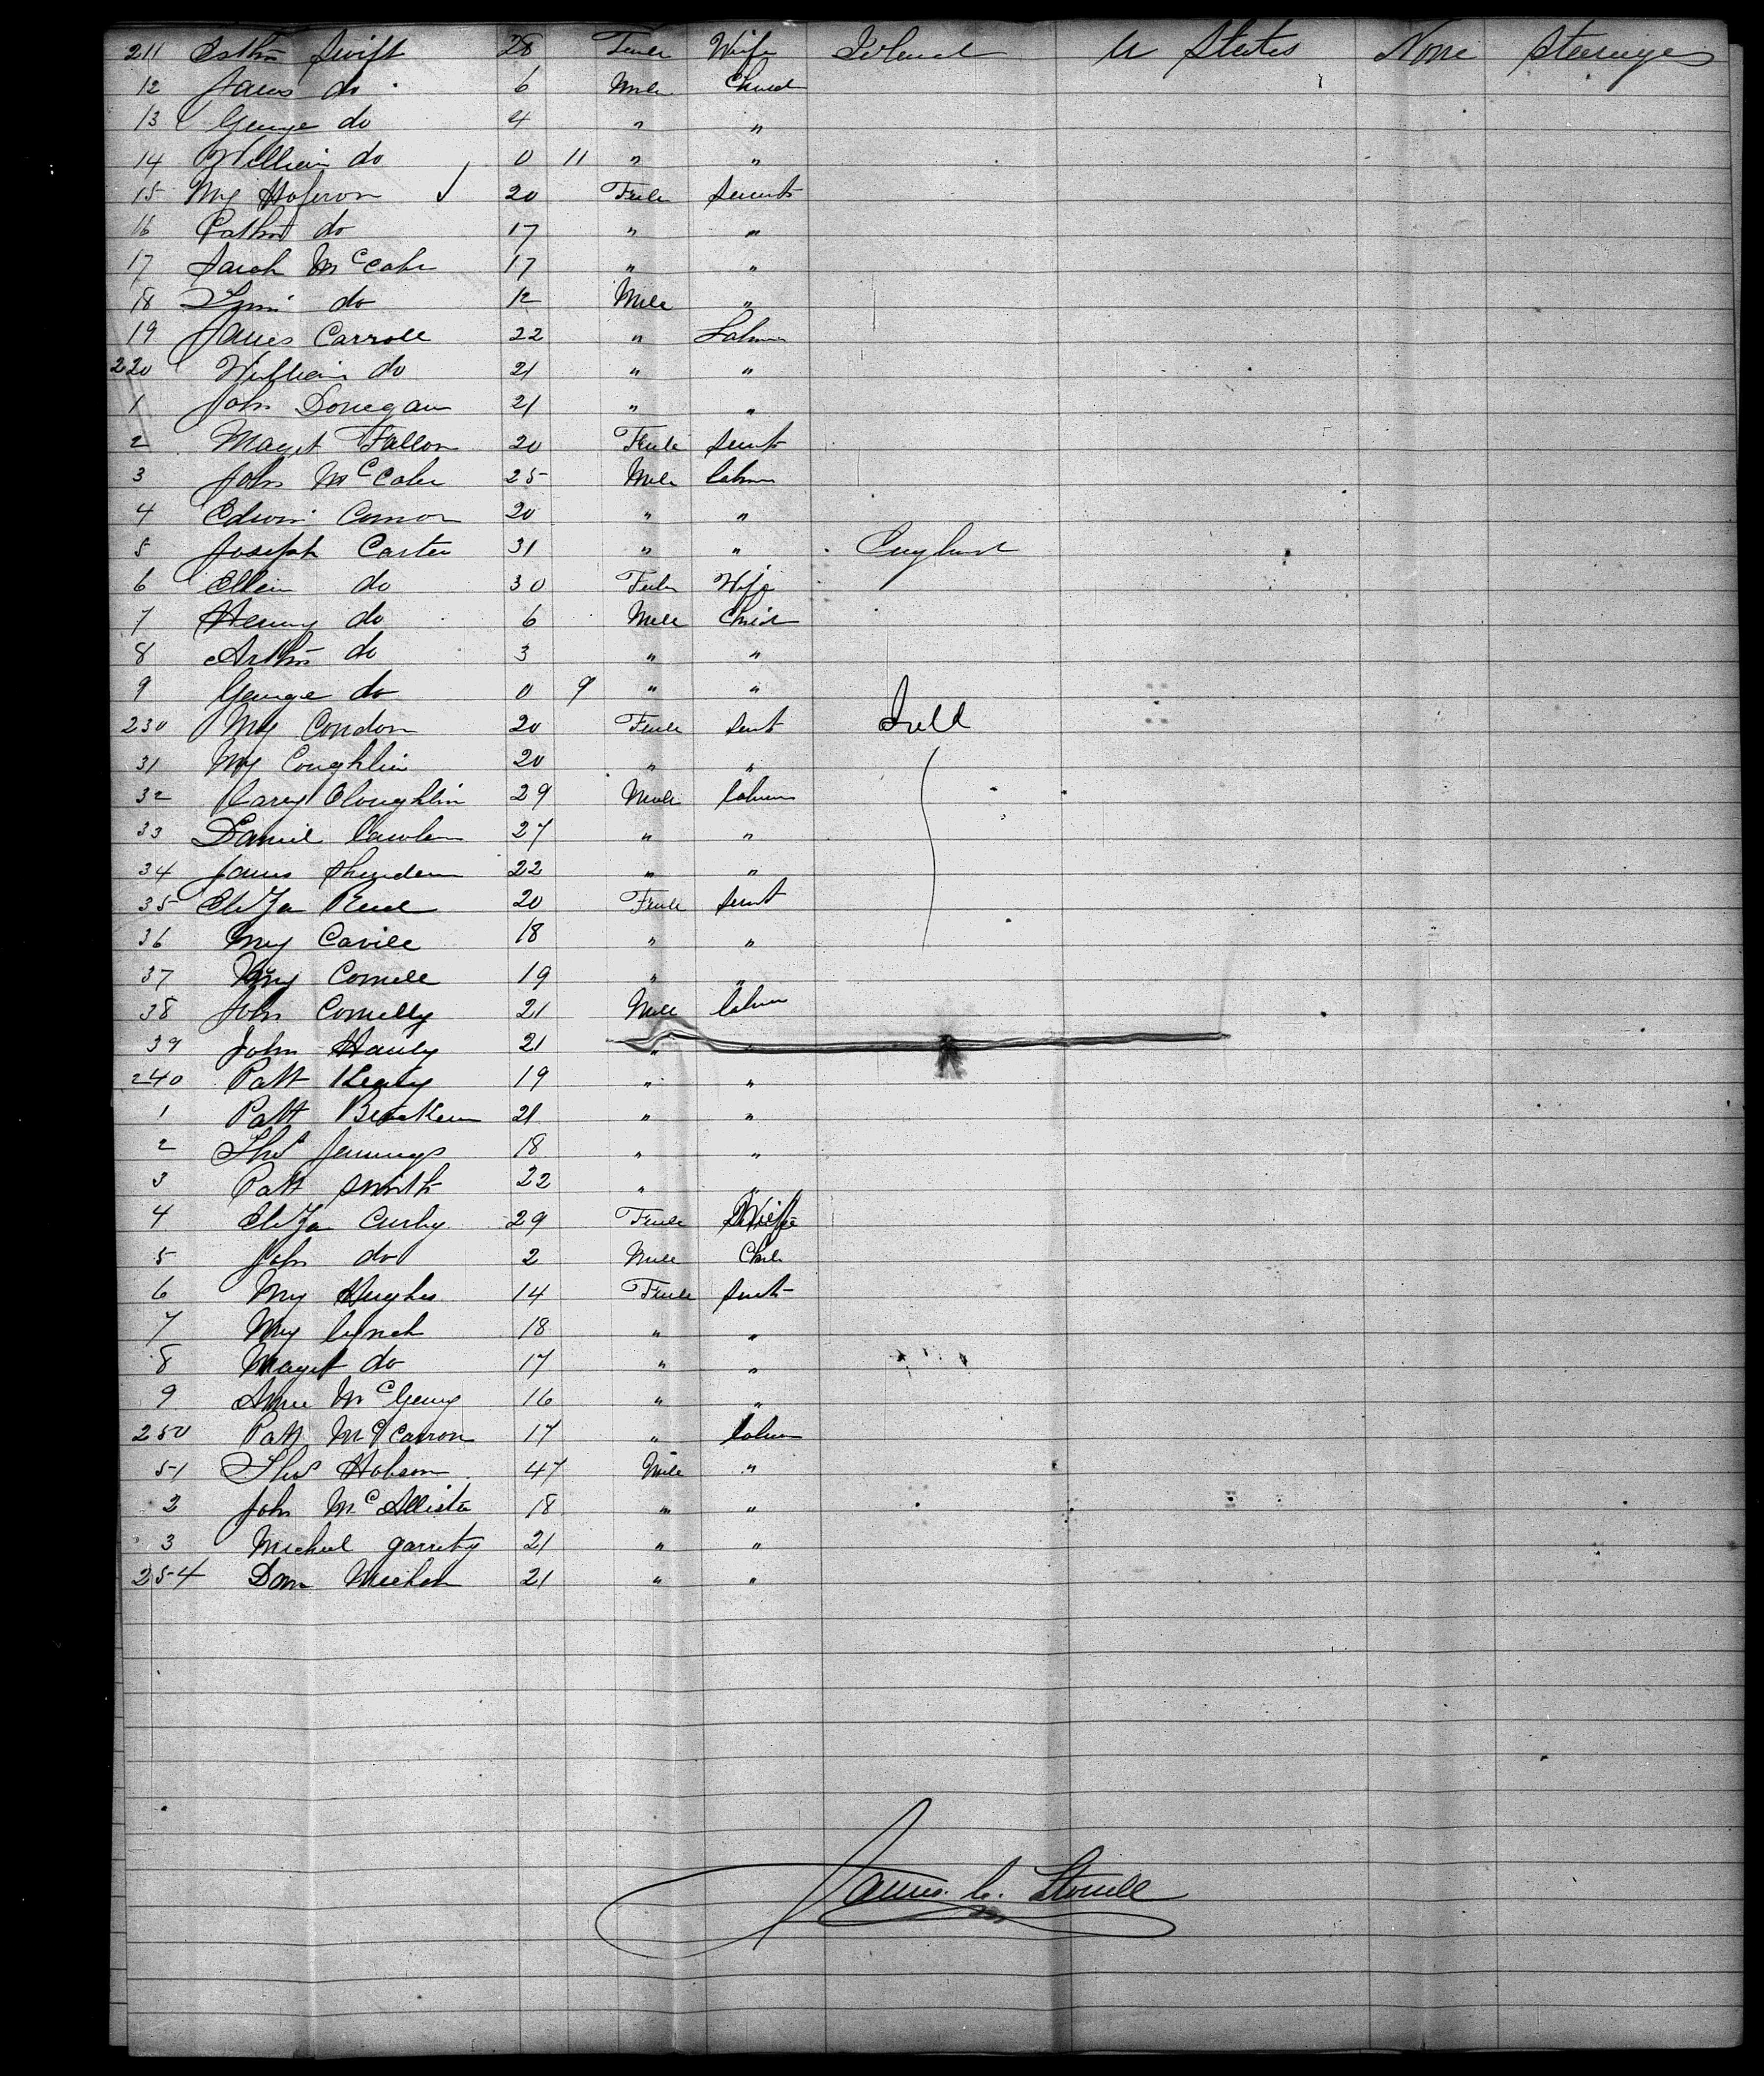 211 Esthr Swift 28 Femle Wife Ireland U States None Steerage
12 James do 6 Male Child
13 George do 4 " "
14 William do 0 11 " "
15 My 20 Femle Servnt
16 Cathn do 17 " "
17 Sarah McCabe 17 " "
18 do 12 Male "
19 James Carroll 22 " Labour
220 William do 21 " "
1 John Donegan 21 " "
2 Magt Fallon 20 Femle Servt
3 John McCabe 25 Male labour
4 Edwin Connor 20 " "
5 Joseph Carter 31 " " England
6 Ellen do 30 Femle Wife
7 Henry do 6 Male Child
8 Arthr do 3 " "
9 George do 0 9 " "
230 My Condon 20 Femle Servt Ireld
31 My Coughlin 20 " "
32 Oloughlin 29 Male labour
33 Daniel 27 " "
34 James 22 " "
35 Eliza 20 Femle Servt
36 My 18 " "
37 My Connell 19 " "
38 John Connelly 21 Male labour
39 John Hanly 21 " "
240 Patt Kealy 19 " "
1 Patt 21 " "
2 Thos Jennings 18 " "
3 Patt Smith 22 " "
4 Eliza 29 Femle Wife
5 John do 2 Male Child
6 My Hughes 14 Femle Servt
7 My Lynch 18 " "
8 Magt do 17 " "
9 Anne 16 " "
250 Patt McCarron 17 " labour
51 Thos Hobson 47 Male "
2 John McAllister 18 " "
3 Michael garrity 21 " "
254 21 " "
James C.